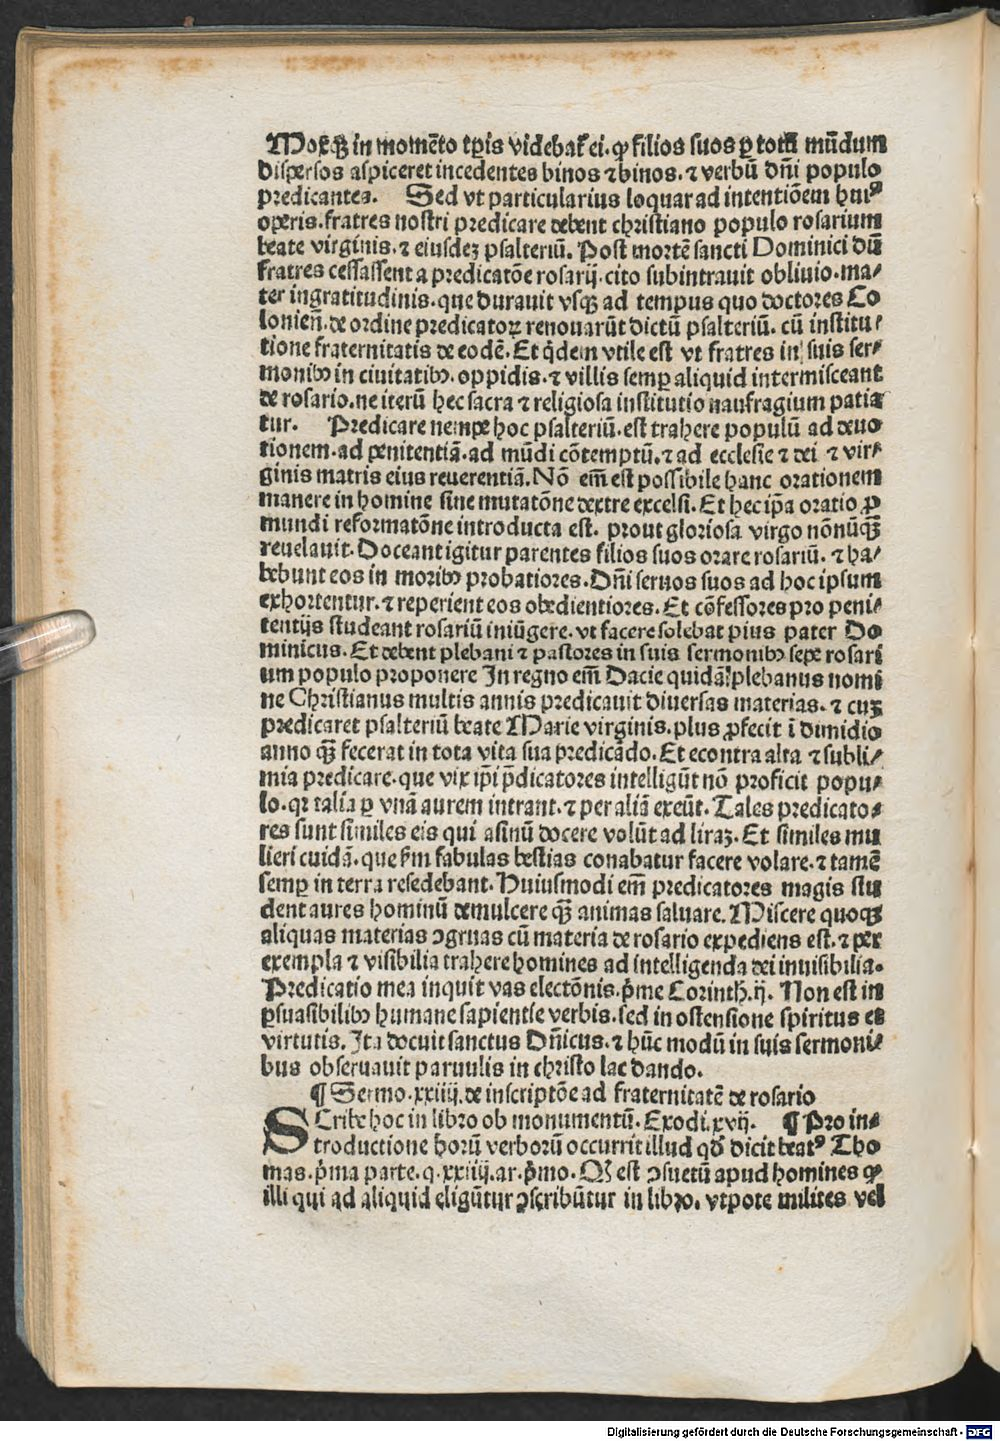 Moxq̄ꝫ in momēto tꝑis videbat̄ ei. ꝙ filios suos ꝑ totū mūdum
dispersos aspiceret incedentes binos ⁊ binos. ⁊ verbū dn̄i populo
predicantes. Sed vt particularius loquar ad intentiōem huiꝰ
operis. fratres nostri predicare debent christiano populo rosarium
beate virginis. ⁊ eiusdeꝫ psalteriū. Post mortē sancti Dominici dū
fratres cessassent a predicatōe rosarij. cito subintrauit obliuio. ma/
ter ingratitudinis. que durauit vsqꝫ ad tempus quo doctores Co
lonien̄. de ordine predicatoꝝ renouarūt dictū psalteriū. cū institu/
tione fraternitatis de eodē. Et q̇dem vtile est vt fratres in suis ser/
monibꝰ in ciuitatibꝰ. oppidis. ⁊ villis semꝑ aliquid intermisceant
de rosario. ne iterū hec sacra ⁊ religiosa institutio naufragium patia
tur. Predicare nempe hoc psalteriū. est trahere populū ad deuo
tionem. ad penitentiā. ad mūdi cōtemptū. ⁊ ad ecclesie ⁊ dei ⁊ vir/
ginis matris eius reuerentiā. Nō em̄ est possibile hanc orationem
manere in homine sine mutatōne dextre excelsi. Et hec ip̄a oratio ꝓ
mundi reformatōne introducta est. prout gloriosa virgo nōnūq̄ꝫ
reuelauit. Doceant igitur parentes filios suos orare rosariū. ⁊ ha/
bebunt eos in moribꝰ probatiores. Dn̄i seruos suos ad hoc ipsum
exhortentur. ⁊ reperient eos obedientiores. Et cōfessores pro peni/
tentijs studeant rosariū iniūgere. vt facere solebat pius pater Do
minicus. Et debent plebani ⁊ pastores in suis sermonibꝰ sepe rosari
um populo proponere In regno em̄ Dacie quidā plebanus nomi
ne Christianus multis annis predicauit diuersas materias. ⁊ cuꝫ
predicaret psalteriū beate Marie virginis. plus ꝓfecit ī dimidio
anno q̄ꝫ fecerat in tota vita sua predicādo. Et econtra alta ⁊ subli/
mia predicare. que vix ip̄i p̄dicatores intelligūt nō proficit popu/
lo. qꝛ talia ꝑ vnā aurem intrant. ⁊ per aliā exeūt. Tales predicato/
res sunt similes eis qui asinū docere volūt ad liraꝫ. Et similes mu
lieri cuidā. que s̄m fabulas bestias conabatur facere volare. ⁊ tamē
semꝑ in terra resedebant. Huiusmodi em̄ predicatores magis stu
dent aures hominū demulcere q̄ꝫ animas saluare. Miscere quoqꝫ
aliquas materias ↄgruas cū materia de rosario expediens est. ⁊ per
exempla ⁊ visibilia trahere homines ad intelligenda dei inuisibilia.
Predicatio mea inquit vas electōnis. p̄me Corinth. ij. Non est in
ꝑsuasibilibꝰ humane sapientie verbis. sed in ostensione spiritus et
virtutis. Ita docuit sanctus Dn̄icus. ⁊ hūc modū in suis sermoni/
bus obseruauit paruulis in christo lac dando.
¶ Sermo. xxiiij. de inscriptōe ad fraternitatē de rosario
SCribe hoc in libro ob monumentū. Exodi. xvij. ¶ Pro in/
troductione horū verborū occurrit illud qd̄ dicit beatꝰ Tho
mas. p̄ma parte. q. xxiiij. ar. p̄mo. Qꝙ est ↄsuetū apud homines ꝙ
illi qui ad aliquid eligūtur ↄscribūtur in libro. vtpote milites vel
Digitalisierung gefördert durch die Deutsche Forschungsgemeinschaft - DFG